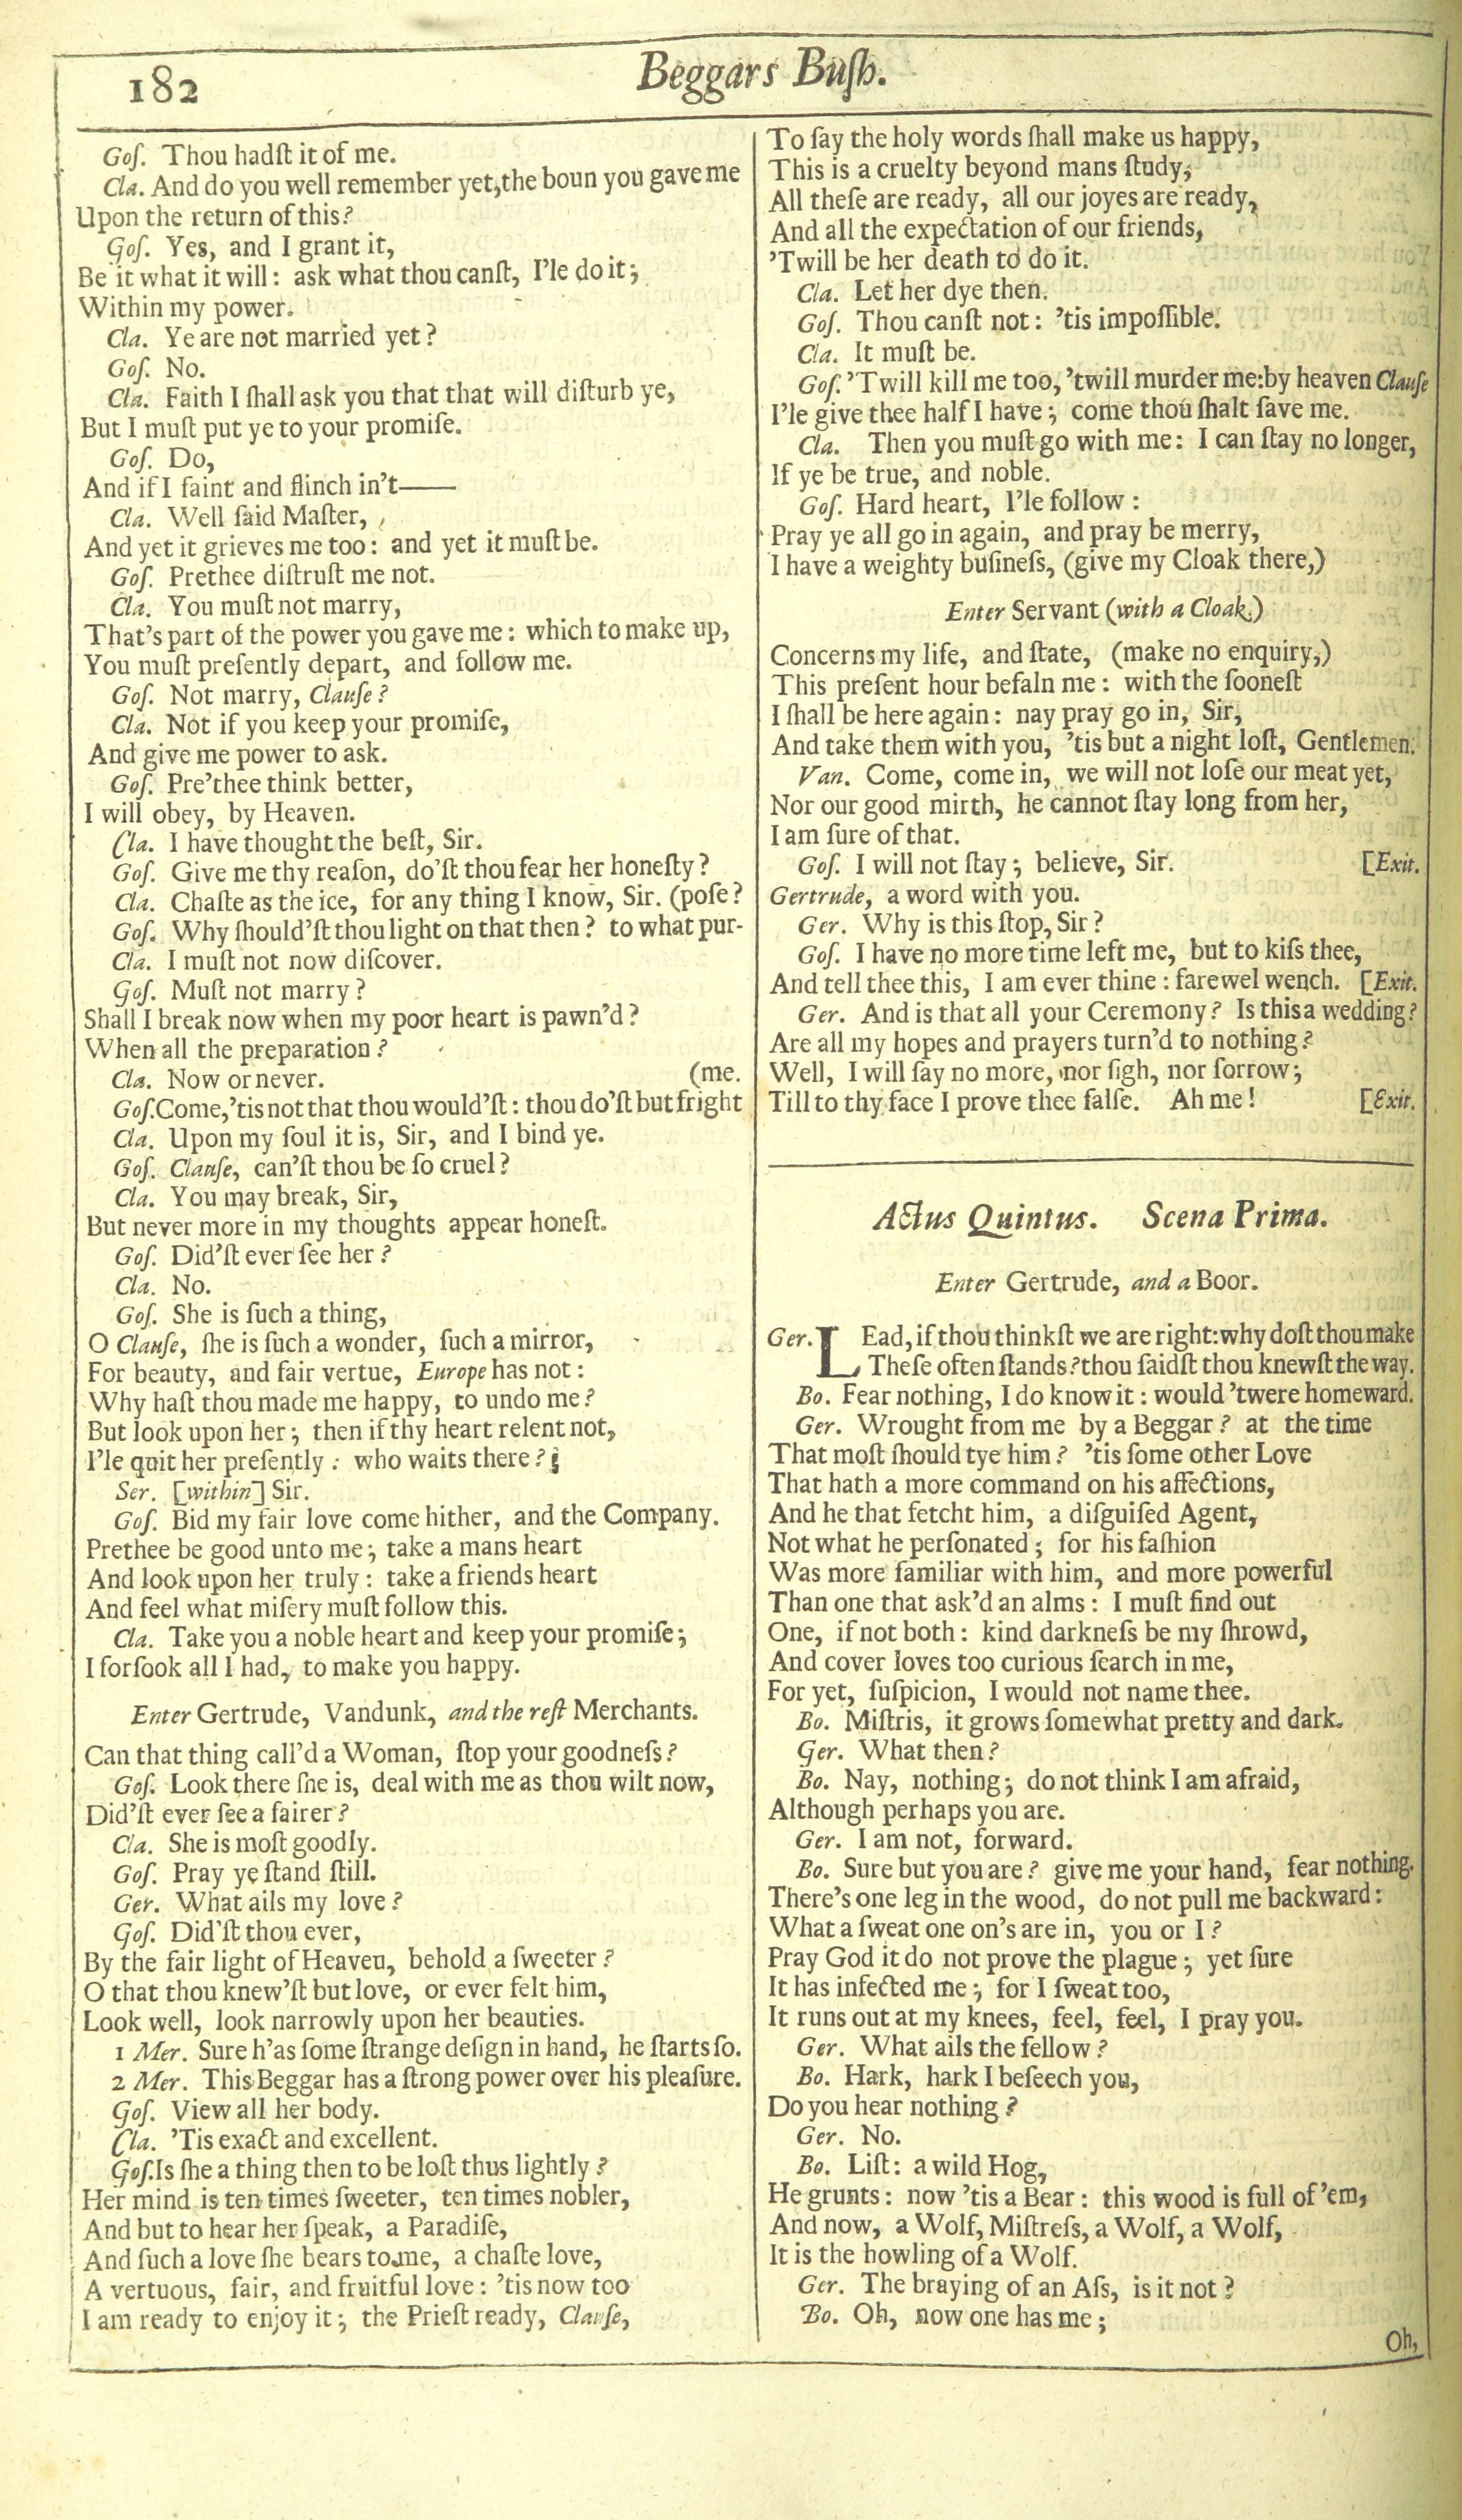 182
Beggars Buſh.
Goſ. Thou hadſt it of me.
Cla. And do you well remember yet, the boun you gave me
Upon the return of this?
Goſ. Yes, and I grant it,
Be it what it will: ask what thou canſt, I'le do it;
Within my power.
Cla. Ye are not married yet?
Goſ. No.
Cla. Faith I ſhall ask you that that will diſturb ye,
But I muſt put ye to your promiſe.
Goſ. Do,
And if I faint and flinch in't——
Cla. Well ſaid Maſter,
And yet it grieves me too: and yet it muſt be.
Goſ. Prethee diſtruſt me not.
Cla. You muſt not marry,
That's part of the power you gave me: which to make up,
You muſt preſently depart, and follow me.
Goſ. Not marry, Clauſe?
Cla. Not if you keep your promiſe,
And give me power to ask.
Goſ. Pre'thee think better,
I will obey, by Heaven.
Cla. I have thought the beſt, Sir.
Goſ. Give me thy reaſon, do'ſt thou fear her honeſty?
Cla. Chaſte as the ice, for any thing I know, Sir. (poſe?
Goſ. Why ſhould'ſt thou light on that then? to what pur-
Cla. I muſt not now diſcover.
Goſ. Muſt not marry?
Shall I break now when my poor heart is pawn'd?
When all the preparation?
Cla. Now or never. (me.
Goſ. Come, 'tis not that thou would'ſt: thou do'ſt but fright
Cla. Upon my ſoul it is, Sir, and I bind ye.
Goſ. Clauſe, can'ſt thou be ſo cruel?
Cla. You may break, Sir,
But never more in my thoughts appear honeſt.
Goſ. Did'ſt ever ſee her?
Cla. No.
Goſ. She is ſuch a thing,
O Clauſe, ſhe is ſuch a wonder, ſuch a mirror,
For beauty, and fair vertue, Europe has not:
Why haſt thou made me happy, to undo me?
But look upon her; then if thy heart relent not,
I'le quit her preſently: who waits there?
Ser. [within] Sir.
Goſ. Bid my fair love come hither, and the Company.
Prethee be good unto me; take a mans heart
And look upon her truly: take a friends heart
And feel what miſery muſt follow this.
Cla. Take you a noble heart and keep your promiſe;
I forſook all I had, to make you happy.
Enter Gertrude, Vandunk, and the reſt Merchants.
Can that thing call'd a Woman, ſtop your goodneſs?
Goſ. Look there ſhe is, deal with me as thou wilt now,
Did'ſt ever ſee a fairer?
Cla. She is moſt goodly.
Goſ. Pray ye ſtand ſtill.
Ger. What ails my love?
Goſ. Did'ſt thou ever,
By the fair light of Heaven, behold a ſweeter?
O that thou knew'ſt but love, or ever felt him,
Look well, look narrowly upon her beauties.
1 Mer. Sure h'as ſome ſtrange deſign in hand, he ſtarts ſo.
2 Mer. This Beggar has a ſtrong power over his pleaſure.
Goſ. View all her body.
Cla. 'Tis exact and excellent.
Goſ. Is ſhe a thing then to be loſt thus lightly?
Her mind is ten times ſweeter, ten times nobler,
And but to hear her ſpeak, a Paradiſe,
And ſuch a love ſhe bears to me, a chaſte love,
A vertuous, fair, and fruitful love: 'tis now too
I am ready to enjoy it; the Prieſt ready, Clauſe,
To ſay the holy words ſhall make us happy,
This is a cruelty beyond mans ſtudy;
All theſe are ready, all our joyes are ready,
And all the expectation of our friends,
'Twill be her death to do it.
Cla. Let her dye then.
Goſ. Thou canſt not: 'tis impoſſible.
Cla. It muſt be.
Goſ. 'Twill kill me too, 'twill murder me: by heaven Clauſe
I'le give thee half I have; come thou ſhalt ſave me.
Cla. Then you muſt go with me: I can ſtay no longer,
If ye be true, and noble.
Goſ. Hard heart, I'le follow:
Pray ye all go in again, and pray be merry,
I have a weighty buſineſs, (give my Cloak there,)
Enter Servant (with a Cloak.)
Concerns my life, and ſtate, (make no enquiry,)
This preſent hour befaln me: with the ſooneſt
I ſhall be here again: nay pray go in, Sir,
And take them with you, 'tis but a night loſt, Gentlemen.
Van. Come, come in, we will not loſe our meat yet,
Nor our good mirth, he cannot ſtay long from her,
I am ſure of that.
Goſ. I will not ſtay; believe, Sir. [Exit.
Gertrude, a word with you.
Ger. Why is this ſtop, Sir?
Goſ. I have no more time left me, but to kiſs thee,
And tell thee this, I am ever thine: farewel wench. [Exit.
Ger. And is that all your Ceremony? Is this a wedding?
Are all my hopes and prayers turn'd to nothing?
Well, I will ſay no more, nor ſigh, nor ſorrow;
Till to thy face I prove thee falſe. Ah me! [Exit.
Actus Quintus. Scena Prima.
Enter Gertrude, and a Boor.
Ger. LEad, if thou thinkſt we are right: why doſt thou make
Theſe often ſtands? thou ſaidſt thou knewſt the way.
Bo. Fear nothing, I do know it: would 'twere homeward.
Ger. Wrought from me by a Beggar? at the time
That moſt ſhould tye him? 'tis ſome other Love
That hath a more command on his affections,
And he that fetcht him, a diſguiſed Agent,
Not what he perſonated; for his faſhion
Was more familiar with him, and more powerful
Than one that ask'd an alms: I muſt find out
One, if not both: kind darkneſs be my ſhrowd,
And cover loves too curious ſearch in me,
For yet, ſuſpicion, I would not name thee.
Bo. Miſtris, it grows ſomewhat pretty and dark.
Ger. What then?
Bo. Nay, nothing; do not think I am afraid,
Although perhaps you are.
Ger. I am not, forward.
Bo. Sure but you are? give me your hand, fear nothing.
There's one leg in the wood, do not pull me backward:
What a ſweat one on's are in, you or I?
Pray God it do not prove the plague; yet ſure
It has infected me; for I ſweat too,
It runs out at my knees, feel, feel, I pray you.
Ger. What ails the fellow?
Bo. Hark, hark I beſeech you,
Do you hear nothing?
Ger. No.
Bo. Liſt: a wild Hog,
He grunts: now 'tis a Bear: this wood is full of 'em,
And now, a Wolf, Miſtreſs, a Wolf, a Wolf,
It is the howling of a Wolf.
Ger. The braying of an Aſs, is it not?
Bo. Oh, now one has me;
Oh,